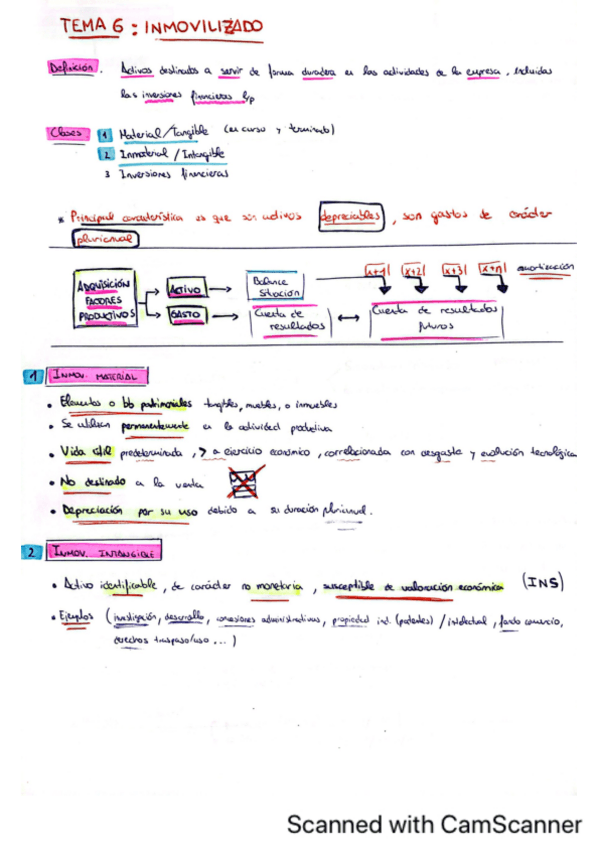 TEMA 6 : INMOVILIZADO
Definición. Activos destinados a servir de forma duradera en las actividades de la empresa, incluidas
las inversiones financieras l/p
Clases 1 Material / Tangible (en curso y terminado)
2 Inmaterial / Intangible
3 Inversiones financieras
* Principal característica es que son activos depreciables, son gastos de carácter
plurianual
ADQUISICIÓN FACTORES PRODUCTIVOS
ACTIVO
GASTO
Balance Situación
Cuenta de resultados
x+1 x+2 x+3 x+n amortización
Cuenta de resultados futuros
1 INMOV. MATERIAL
• Elementos o bb patrimoniales tangibles, muebles, o inmuebles
• Se utilizan permanentemente en la actividad productiva
• Vida útil predeterminada, > a ejercicio económico, correlacionada con desgaste y evolución tecnológica
• No destinado a la venta
• Depreciación por su uso debido a su duración plurianual.
2 INMOV. INTANGIBLE
• Activo identificable, de carácter no monetario, susceptible de valoración económica (INS)
• Ejemplos (investigación, desarrollo, concesiones administrativas, propiedad ind. (patentes) / intelectual, fondo comercio,
derechos traspaso/uso ... )
Scanned with CamScanner